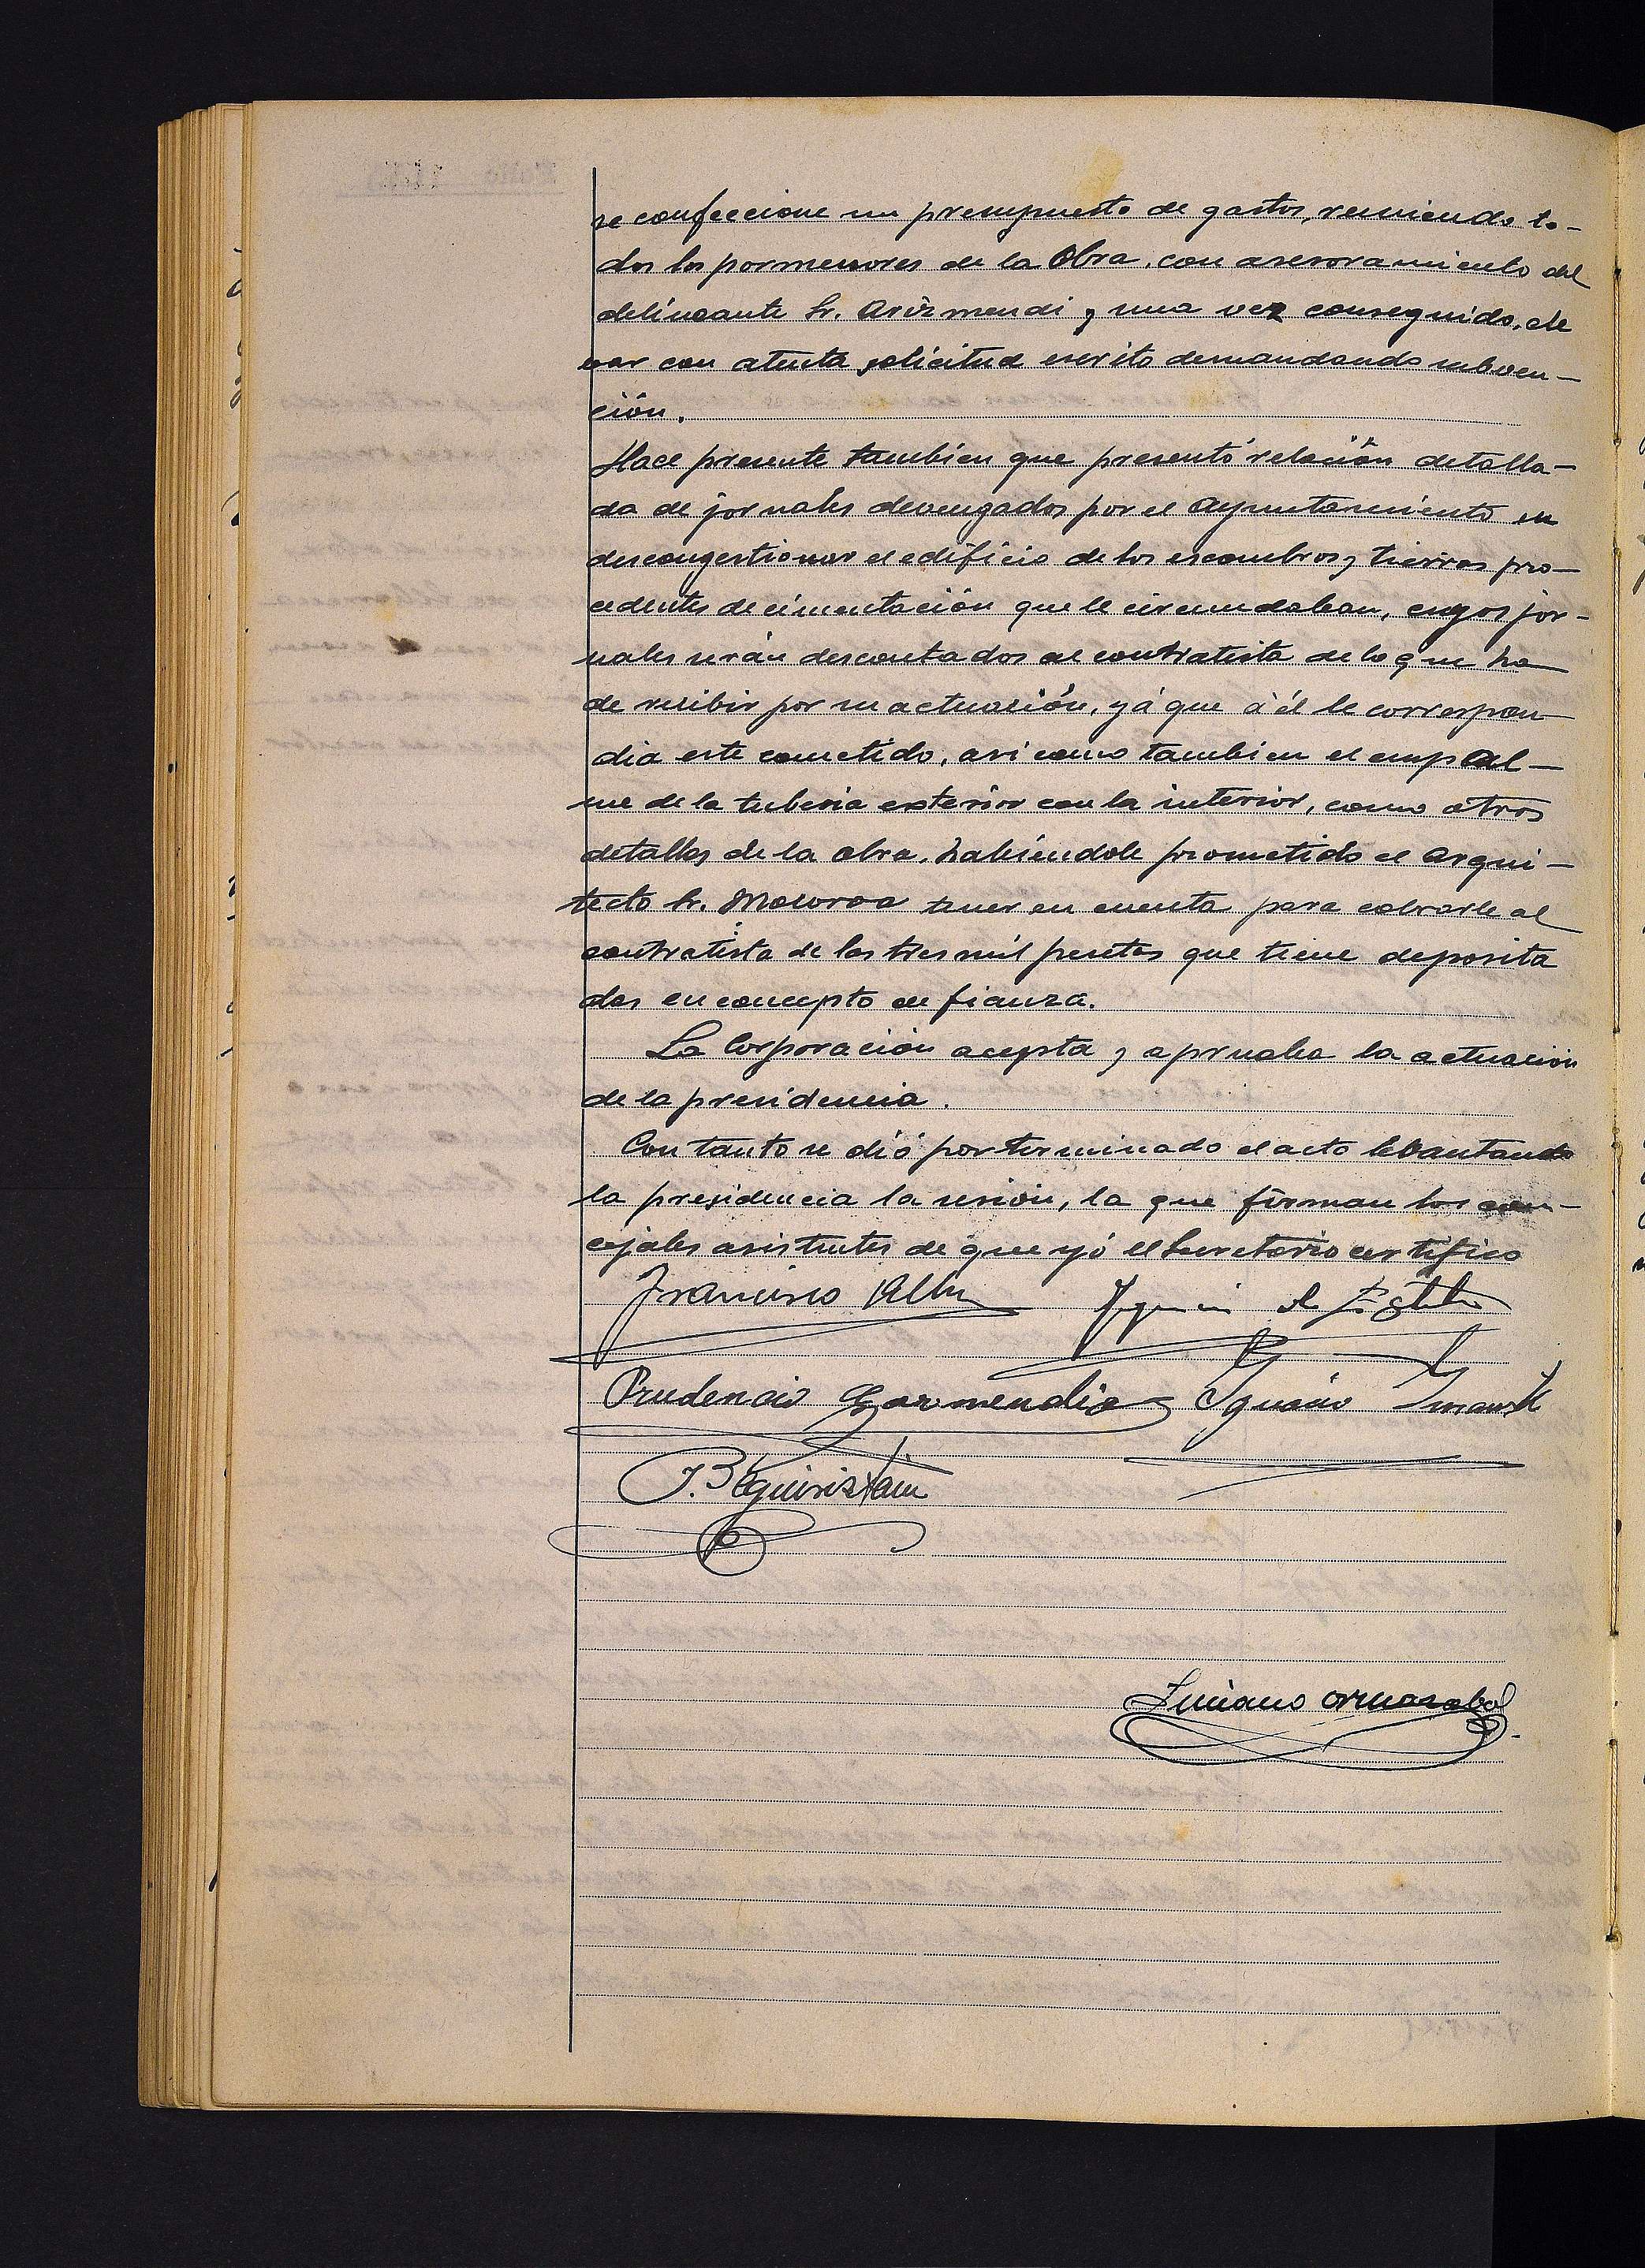 se confeccione un presupuesto de gastos, reuniendo to-
dos los pormenores de la Obra, con asesoramiento del
delineante Sr. Arizmendi y una vez conseguido, ele
var con atenta solicitud escrito demandando subven-
ción.
Hace presente tambien que presentó relación detalla-
da de jornales devengados por el Ayuntamiento en
descongestionar el edificio de los escombros y tierras pro-
cedentes de cimentación que le circundaban, cuyos jor-
nales serán descontados al contratista de lo que ha
de recibir por su actuación, yá que á él le correspon
dia este cometido, asi como tambien el empal-
me de la tuberia exterior con la interior, como otros
detalles de la obra, habiéndole prometido el arqui-
tecto Sr. Mocoroa tener en cuenta para cobrarle al
contratista de las tres mil pesetas que tiene deposita
das en concepto de fianza.
La Corporación acepta y aprueba la actuación
de la presidencia.
Con tanto se dió por terminado el acto lebantando
la presidencia la sesión, la que firman los con-
cejales asistentes de que yó el Secretario certifico
Francisco
Prudencio Garmendia Ignacio
J. B. Eguiristain
Luciano Ormazabal